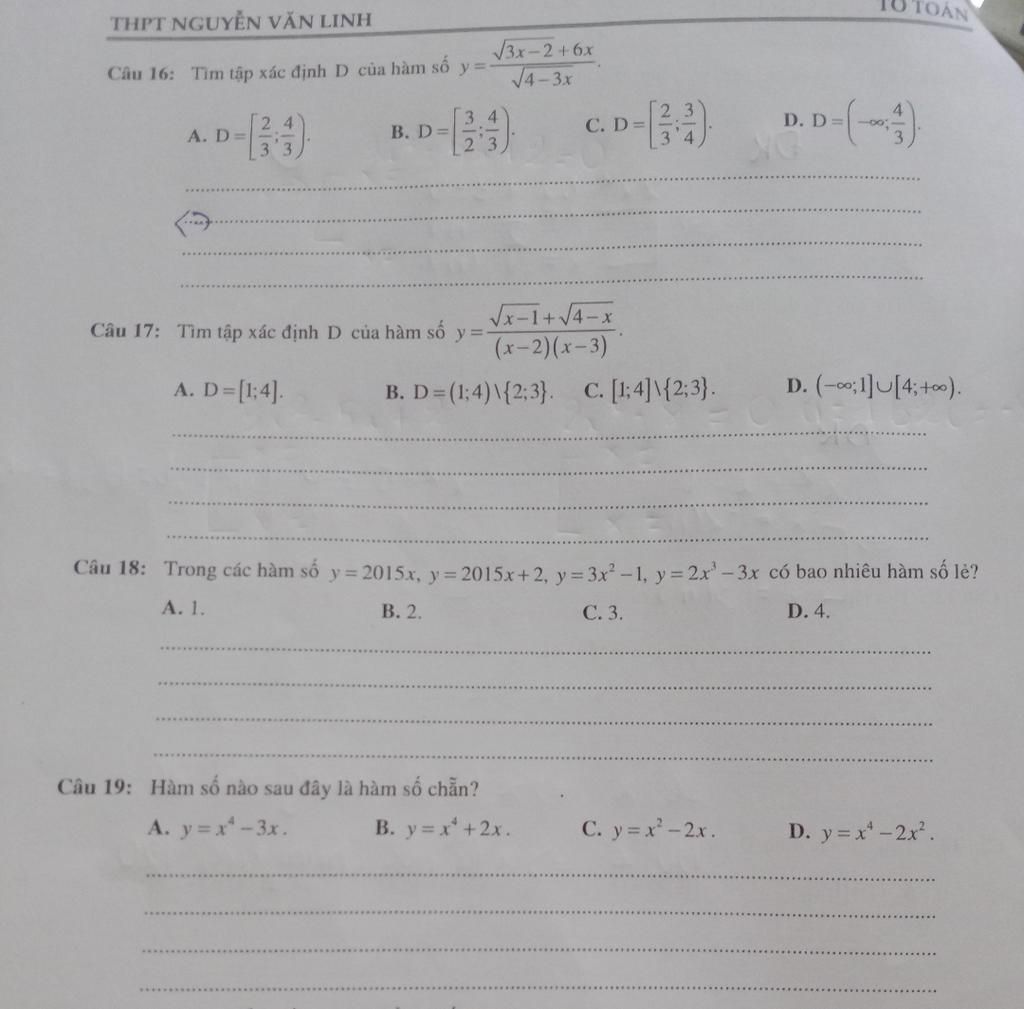 THPT NGUYỄN VĂN LINH
TỔ TOÁN
Câu 16: Tìm tập xác định D của hàm số y = \frac{\sqrt{3x-2}+6x}{\sqrt{4-3x}}.
A. D = [\frac{2}{3};\frac{4}{3}). B. D = [\frac{3}{2};\frac{4}{3}). C. D = [\frac{2}{3};\frac{3}{4}). D. D = (-∞;\frac{4}{3}).
Câu 17: Tìm tập xác định D của hàm số y = \frac{\sqrt{x-1}+\sqrt{4-x}}{(x-2)(x-3)}.
A. D = [1;4]. B. D = (1;4)\{2;3}. C. [1;4]\{2;3}. D. (-∞;1]∪[4;+∞).
Câu 18: Trong các hàm số y = 2015x, y = 2015x+2, y = 3x² - 1, y = 2x³ - 3x có bao nhiêu hàm số lẻ?
A. 1. B. 2. C. 3. D. 4.
Câu 19: Hàm số nào sau đây là hàm số chẵn?
A. y = x⁴ - 3x. B. y = x⁴ + 2x. C. y = x² - 2x. D. y = x⁴ - 2x².